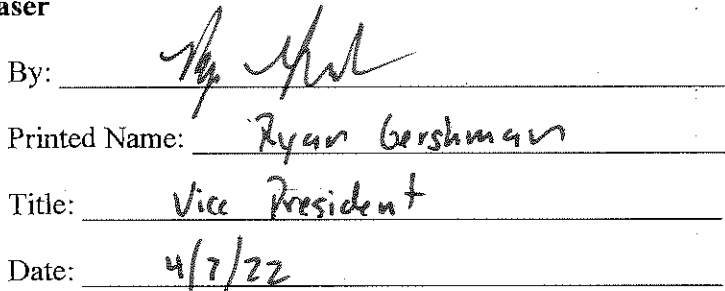 aser
By:
Printed Name: Ryan Gershman
Title: Vice President
Date: 4/7/22